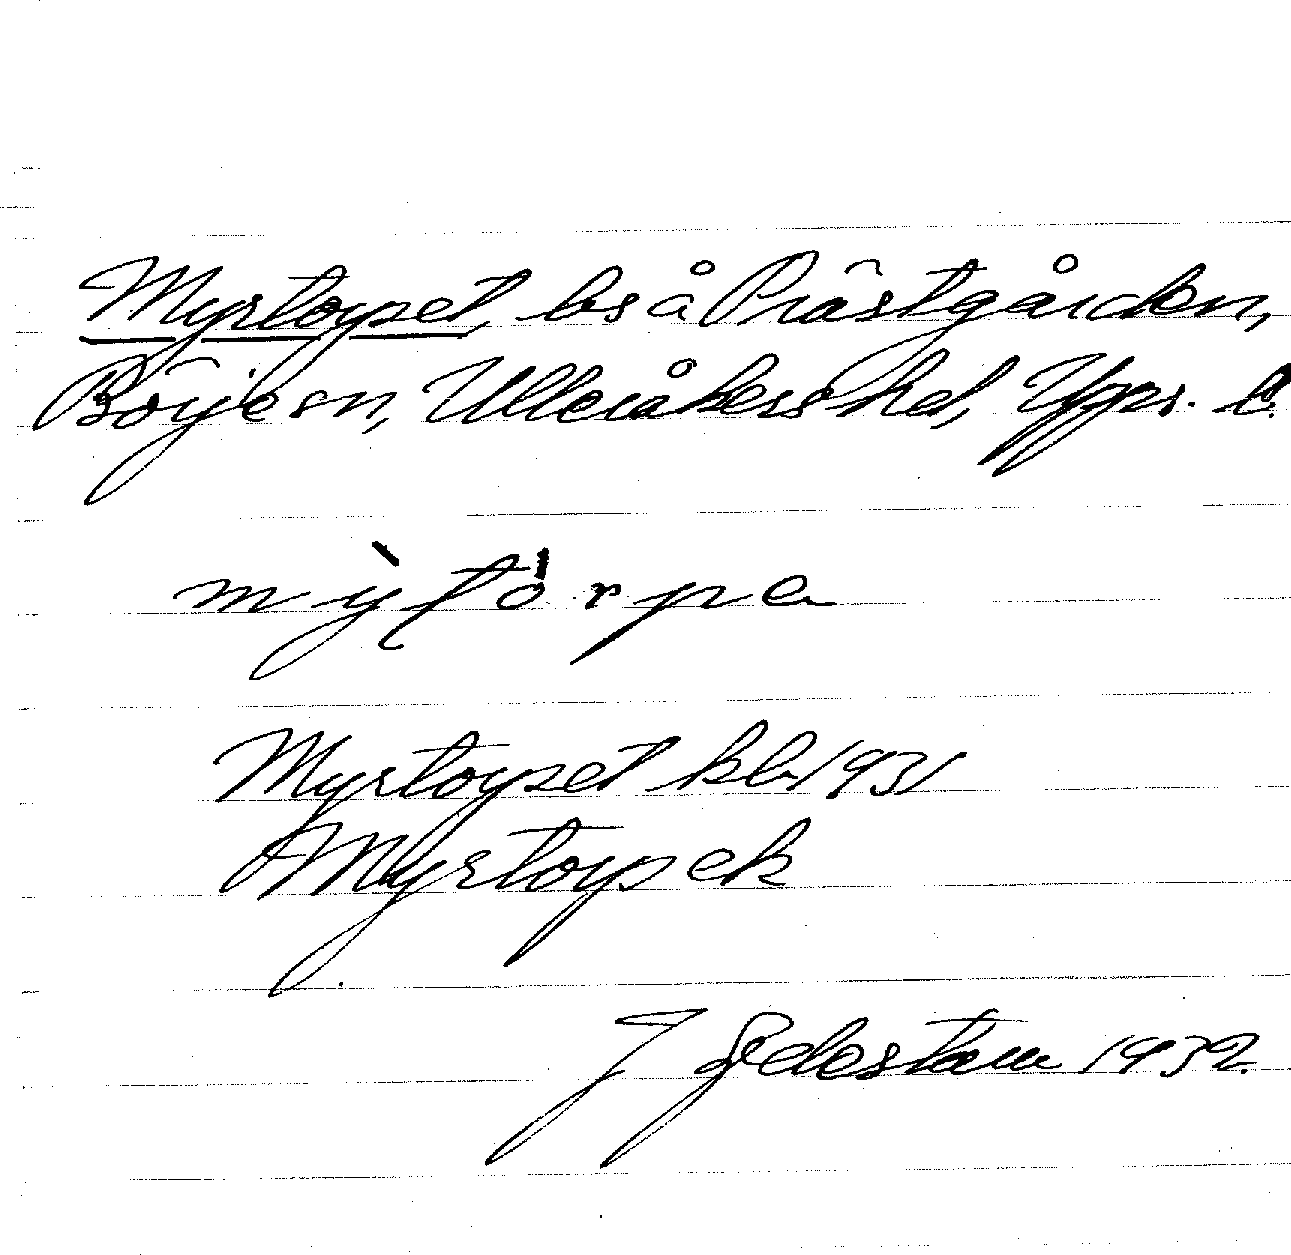 Myrtorpet, bs å Prästgården,
Börje sn, Ulleråkers hd, Upps. l.
mỳtó̀rpa
Myrtorpet kb 1931
Myrtorp ek
1932